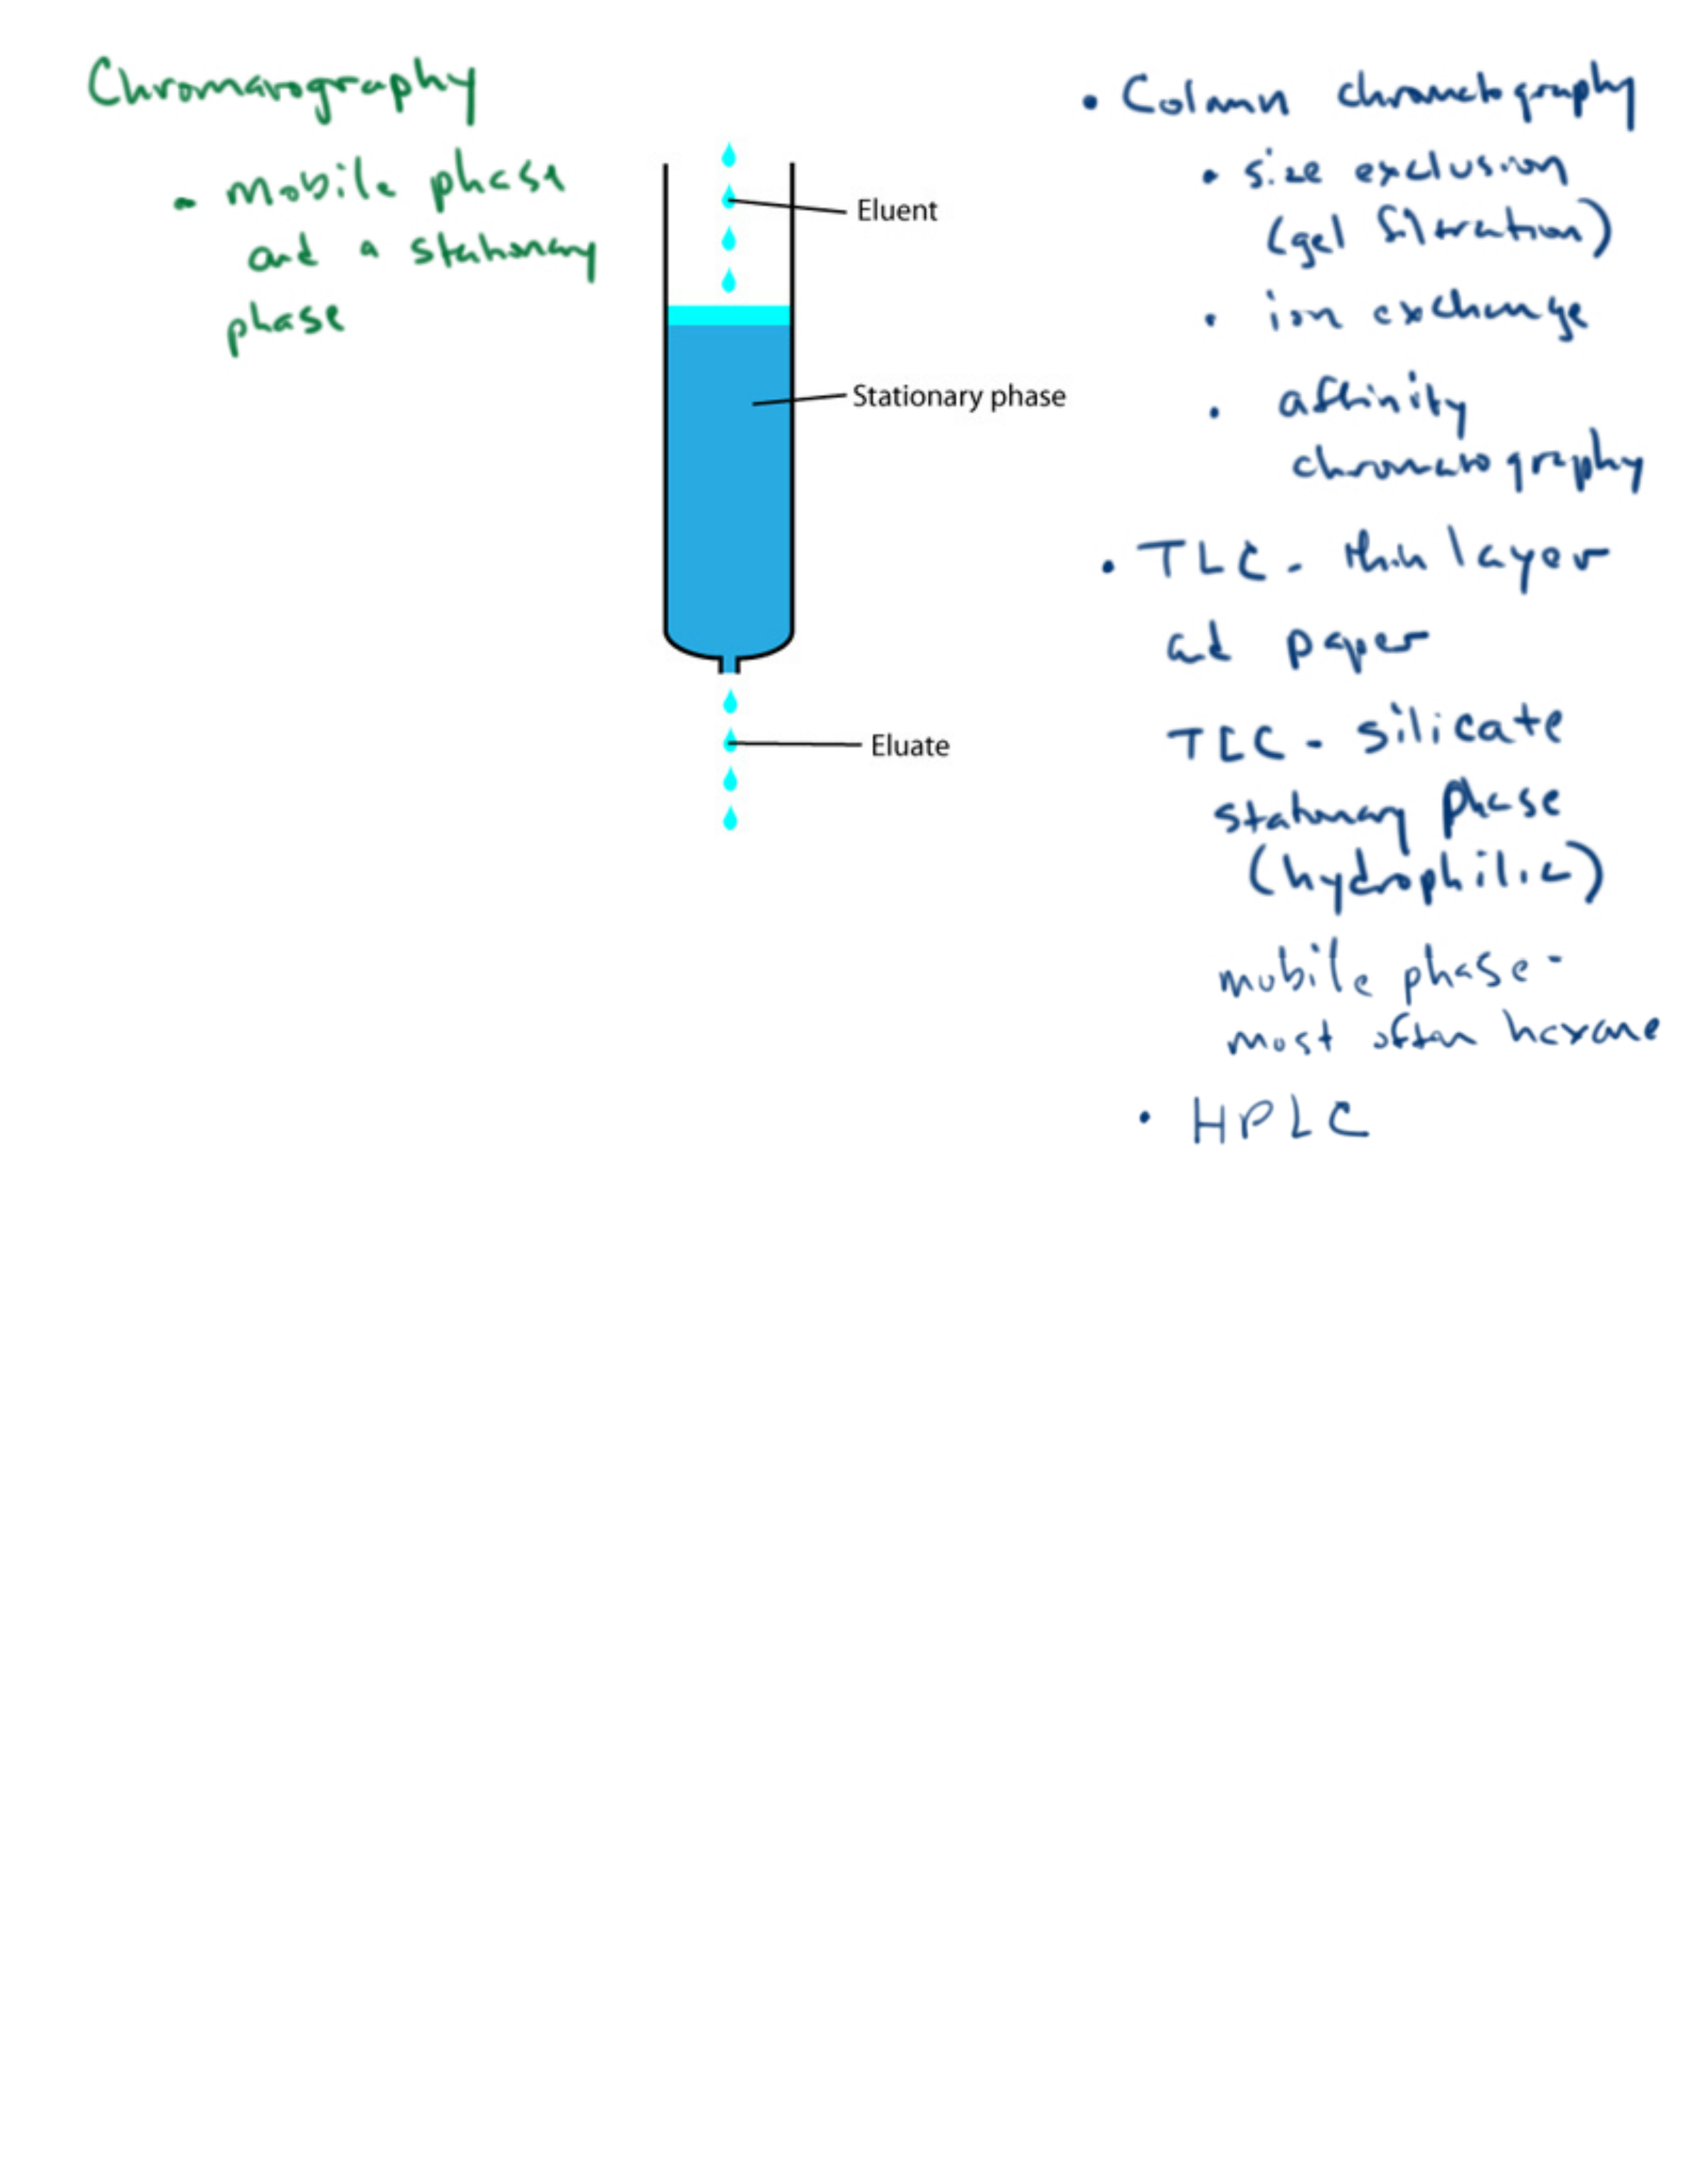 Chromatography
- mobile phase
and a stationary
phase
Eluent
Stationary phase
Eluate
• Column chromatography
• size exclusion
(gel filtration)
• ion exchange
• affinity
chromatography
• TLC - thin layer
and paper
TLC - silicate
stationary phase
(hydrophilic)
mobile phase -
most often hexane
• HPLC